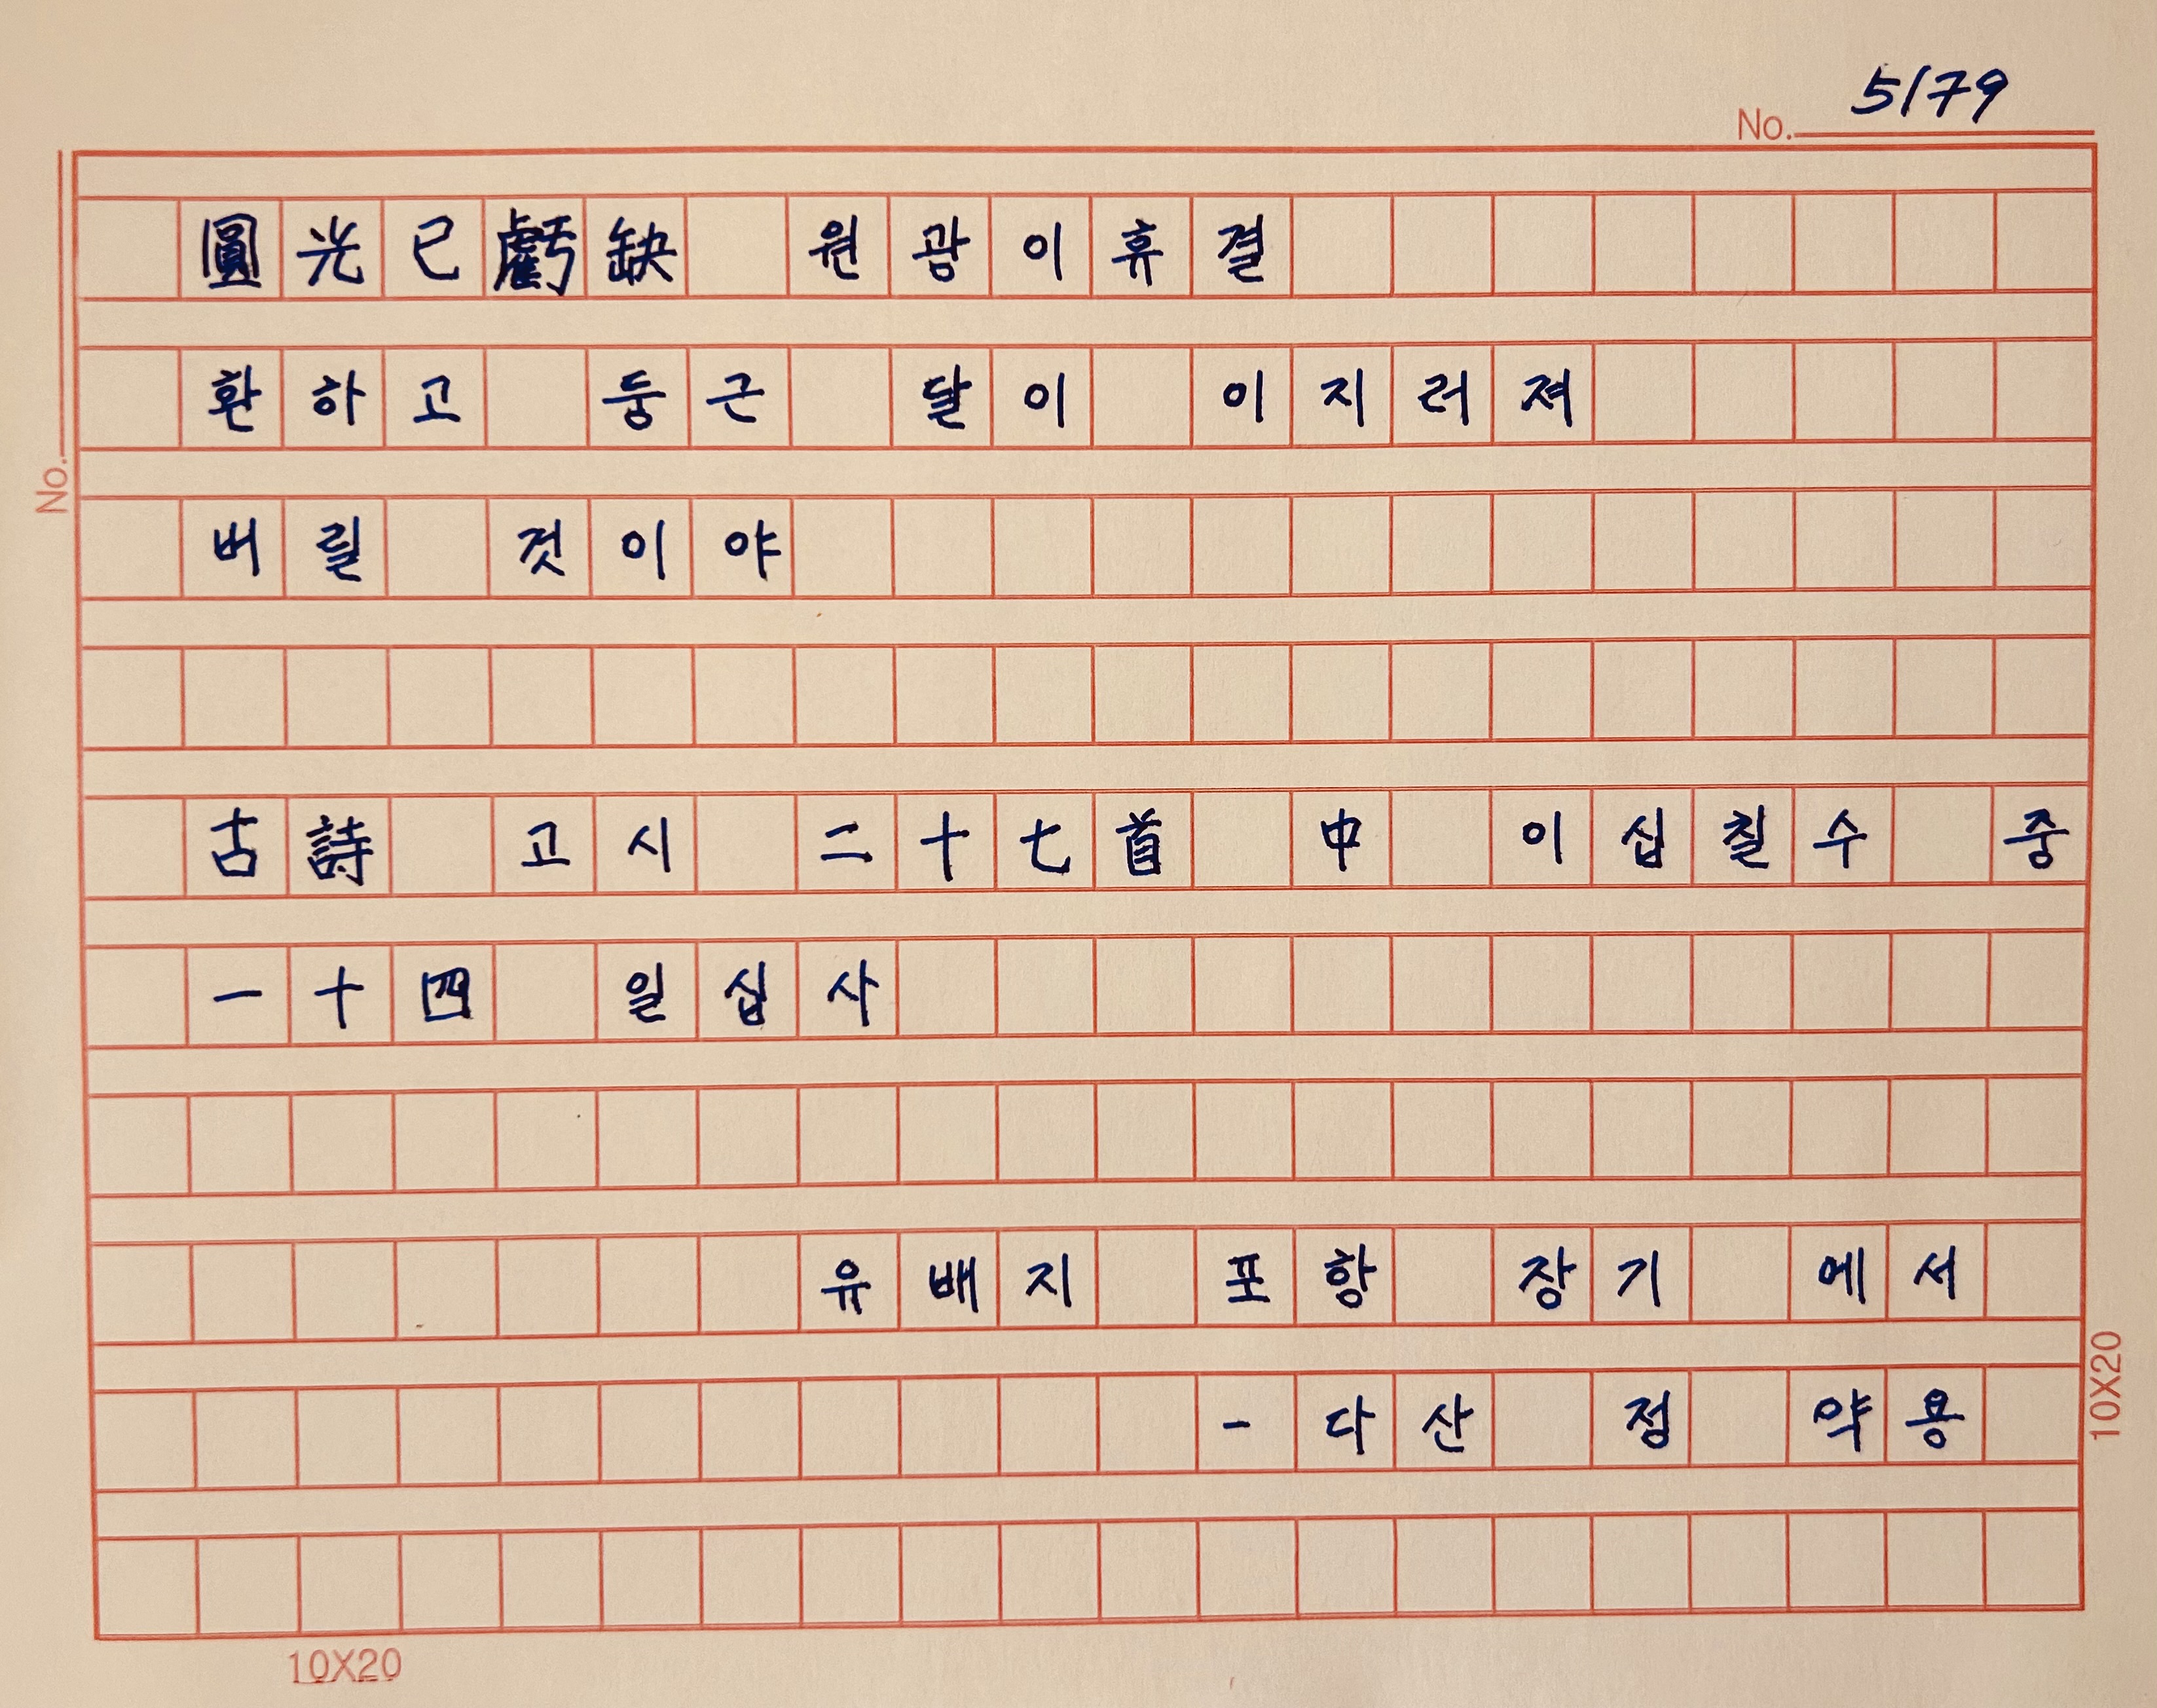 5179
No.
圓光已虧缺 원광이휴결
환하고 둥근 달이 이지러져
버릴 것이야
No.
古詩 고시 二十七首 中 이십칠수 중
一十四 일십사
유배지 포항 장기 에서
- 다산 정 약용
10X20
10X20